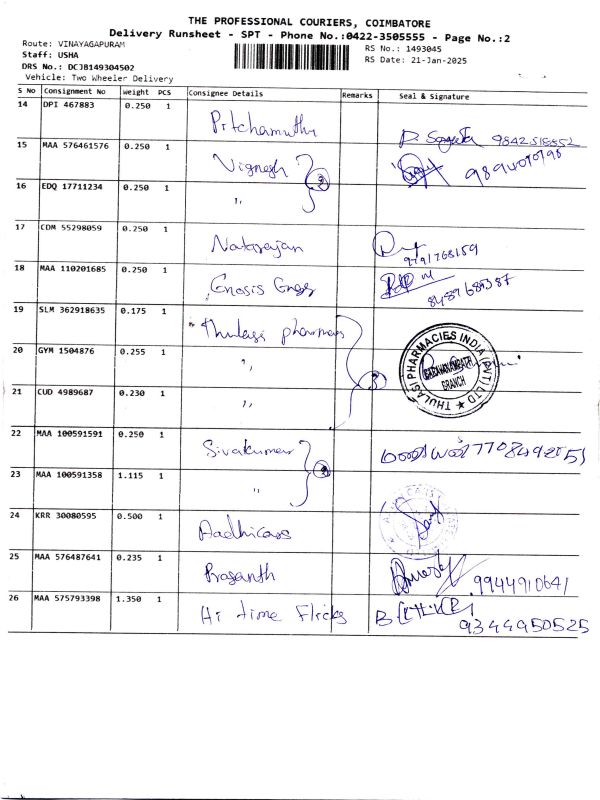 THE PROFESSIONAL COURIERS, COIMBATORE
Delivery Runsheet - SPT - Phone No.:0422-3505555 - Page No.:2
Route: VINAYAGAPURAM
RS No.: 1493045
Staff: USHA
RS Date: 21-Jan-2025
DRS No.: DCJB149304502
Vehicle: Two Wheeler Delivery
S No Consignment No Weight PCS Consignee Details Remarks Seal & Signature
14 DPI 467883 0.250 1 Pitchamuthu 9842518552
15 MAA 576461576 0.250 1 Vignesh 9894070798
16 EDQ 17711234 0.250 1 "
17 CDM 55298059 0.250 1 Natarajan 9791768159
18 MAA 110201685 0.250 1 Gnosis Engg 8489689387
19 SLM 362918635 0.175 1 Thulasi pharmacy
20 GYM 1504876 0.255 1 " 3
THULASI PHARMACIES INDIA (PVT) LTD
BRANCH
21 CUD 4989687 0.230 1 "
22 MAA 100591591 0.250 1 Sivakumar
23 MAA 100591358 1.115 1 "
24 KRR 30080595 0.500 1 Aadhicars
25 MAA 576487641 0.235 1 Prasanth 9944910641
26 MAA 575793398 1.350 1 Hi time Flicks 9344950525